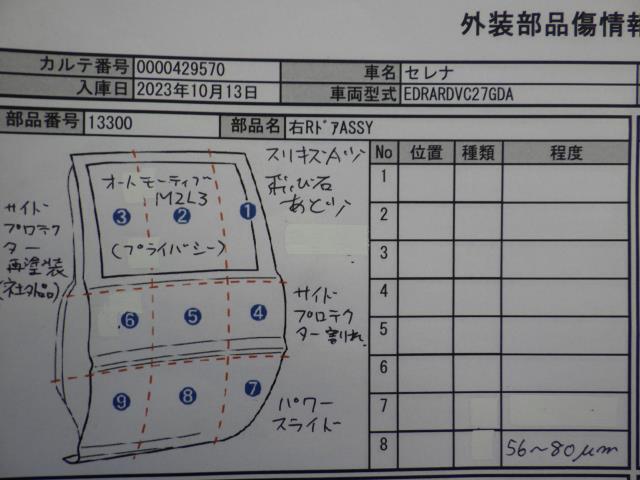 外装部品傷情報
カルテ番号 0000429570 車名 セレナ
入庫日 2023年10月13日 車両型式 EDRARDVC27GDA
部品番号 13300 部品名 右RドアASSY
オートモーティブ
M2L3
3 2 1
(プライバシー)
スリキズA
飛び石
あと
サイド
プロテク
ター
再塗装
(社外品)
6 5 4
サイド
プロテク
ター割れ
9 8 7
パワー
スライド
No 位置 種類 程度
1
2
3
4
5
6
7
8 56~80μm